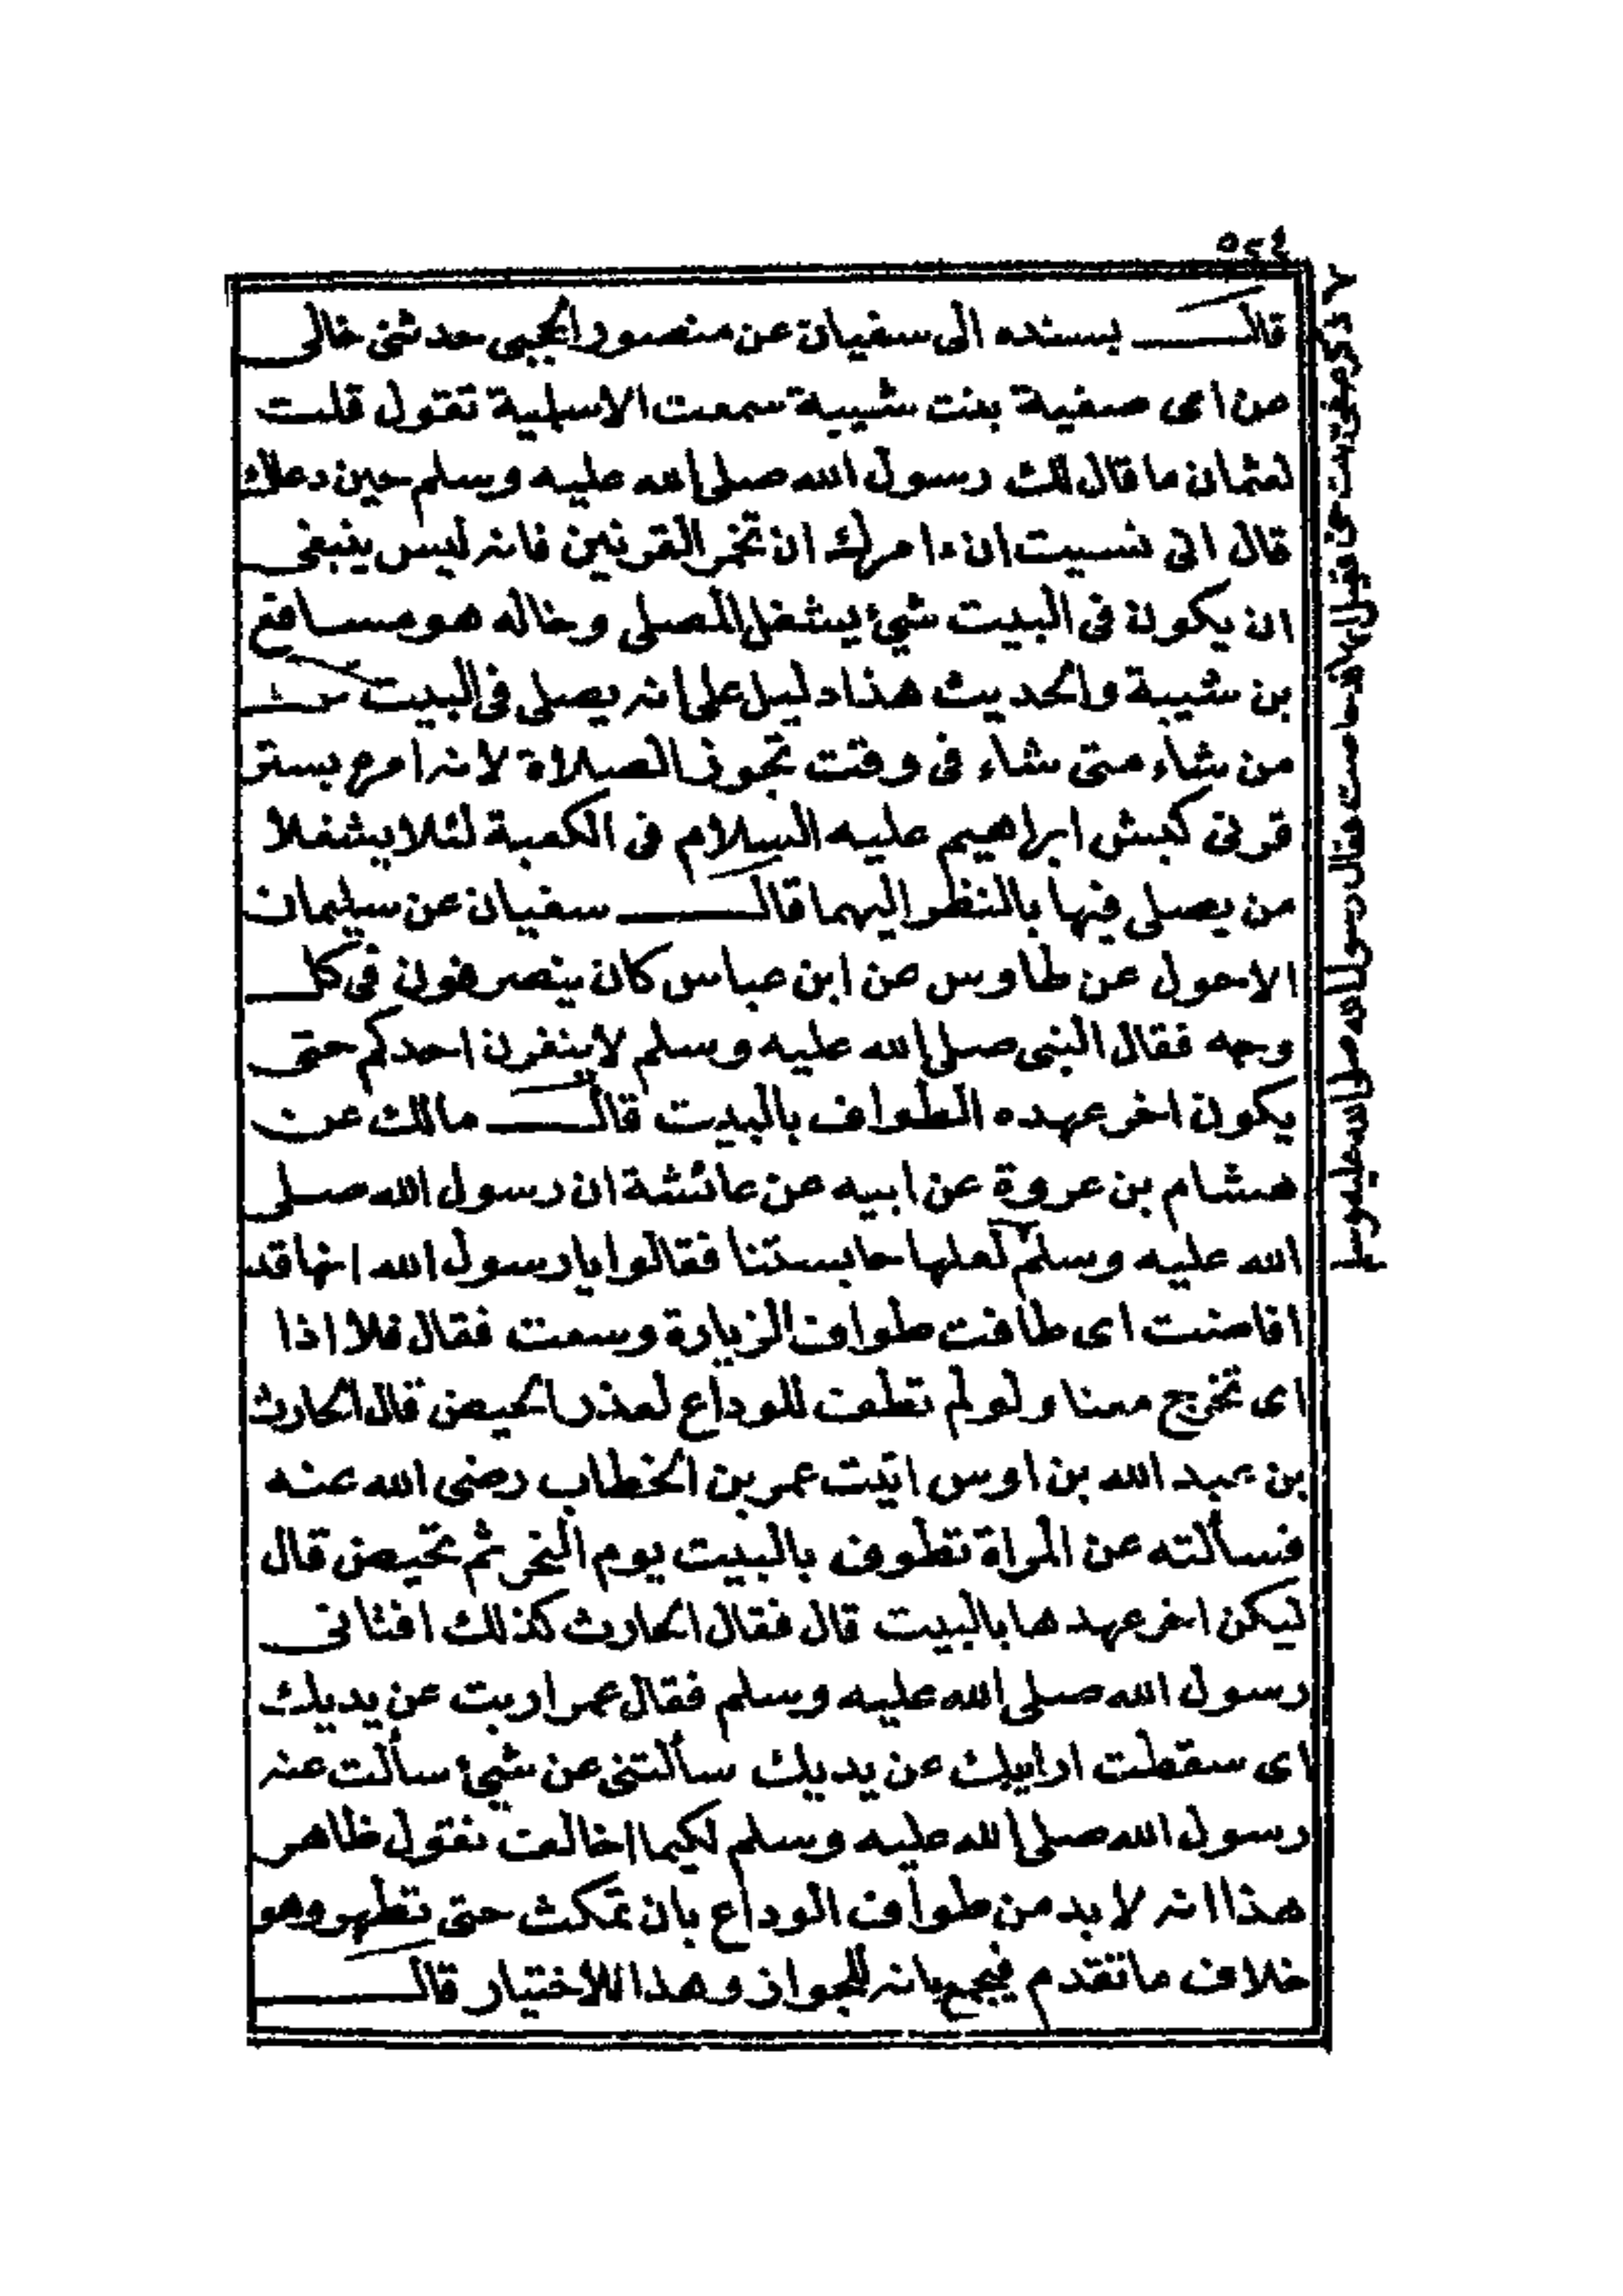 ٥٤٤
قال بسنده الى سفيان عن منصور الحجبى حدثنى خالى
عن امى صفية بنت شيبة سمعت الاسلمية تقول قلت
لعثمان ما قال لك رسول الله صلى الله عليه وسلم حين دعاك
قال انى نسيت ان ءامرك ان تخمر القرنين فانه ليس ينبغى
ان يكون فى البيت شئ يشغل المصلى وخاله هو مسافع
بن شيبة والحديث هذا دليل على انه يصلى فى البيت
من شاء متى شاء فى وقت تجوز الصلاة لانه امره بستر
قرنى كبش ابراهيم عليه السلام فى الكعبة لئلا يشغلا
من يصلى فيها بالنظر اليهما قال سفيان عن سليمان
الاحول عن طاوس عن ابن عباس كان ينصرفون فى كل
وجه فقال النبى صلى الله عليه وسلم لا ينفرن احدكم حتى
يكون اخر عهده الطواف بالبيت قال مالك عن
هشام بن عروة عن ابيه عن عائشة ان رسول الله صلى
الله عليه وسلم لعلها حابستنا فقالوا يا رسول الله انها قد
افاضت اى طافت طواف الزيارة وسعت فقال فلا اذا
اى تخرج معنا ولو لم تطف للوداع لعذر الحيض قال الحارث
بن عبد الله بن اوس اتيت عمر بن الخطاب رضى الله عنه
فسألته عن المراة تطوف بالبيت يوم النحر ثم تحيض قال
ليكن اخر عهدها بالبيت قال فقال الحارث كذلك افتانى
رسول الله صلى الله عليه وسلم فقال عمر اربت عن يديك
اى سقطت ارابك عن يديك سألتنى عن شئ سألت عنه
رسول الله صلى الله عليه وسلم لكيما اخالف نقول ظاهر
هذا انه لا بد من طواف الوداع بان تمكث حتى تطهر وهو
خلاف ما تقدم فيجمع بانه للجواز وهذا للاختيار قال
ذكر صفية بنت حيى فقيل انها حاضت فقال رسول الله صلى الله عليه وسلم